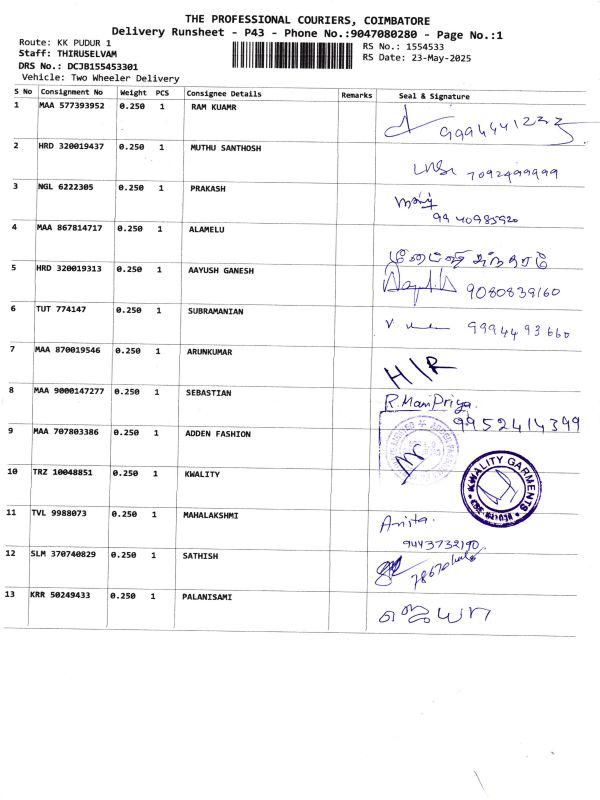 THE PROFESSIONAL COURIERS, COIMBATORE
Delivery Runsheet - P43 - Phone No.:9047080280 - Page No.:1
Route: KK PUDUR 1
RS No.: 1554533
Staff: THIRUSELVAM
RS Date: 23-May-2025
DRS No.: DCJB155453301
Vehicle: Two Wheeler Delivery
S No Consignment No Weight PCS Consignee Details Remarks Seal & Signature
1 MAA 577393952 0.250 1 RAM KUAMR
2 HRD 320019437 0.250 1 MUTHU SANTHOSH 7092499999
3 NGL 6222305 0.250 1 PRAKASH
9940985920
4 MAA 867814717 0.250 1 ALAMELU
5 HRD 320019313 0.250 1 AAYUSH GANESH 9080839160
6 TUT 774147 0.250 1 SUBRAMANIAN 9994493660
7 MAA 870019546 0.250 1 ARUNKUMAR H/R
8 MAA 9000147277 0.250 1 SEBASTIAN R.ManiPriya
9952414399
9 MAA 707803386 0.250 1 ADDEN FASHION
10 TRZ 10048851 0.250 1 KWALITY KWALITY GARMENTS
11 TVL 9988073 0.250 1 MAHALAKSHMI Anita
9443732190
12 SLM 370740829 0.250 1 SATHISH
13 KRR 50249433 0.250 1 PALANISAMI